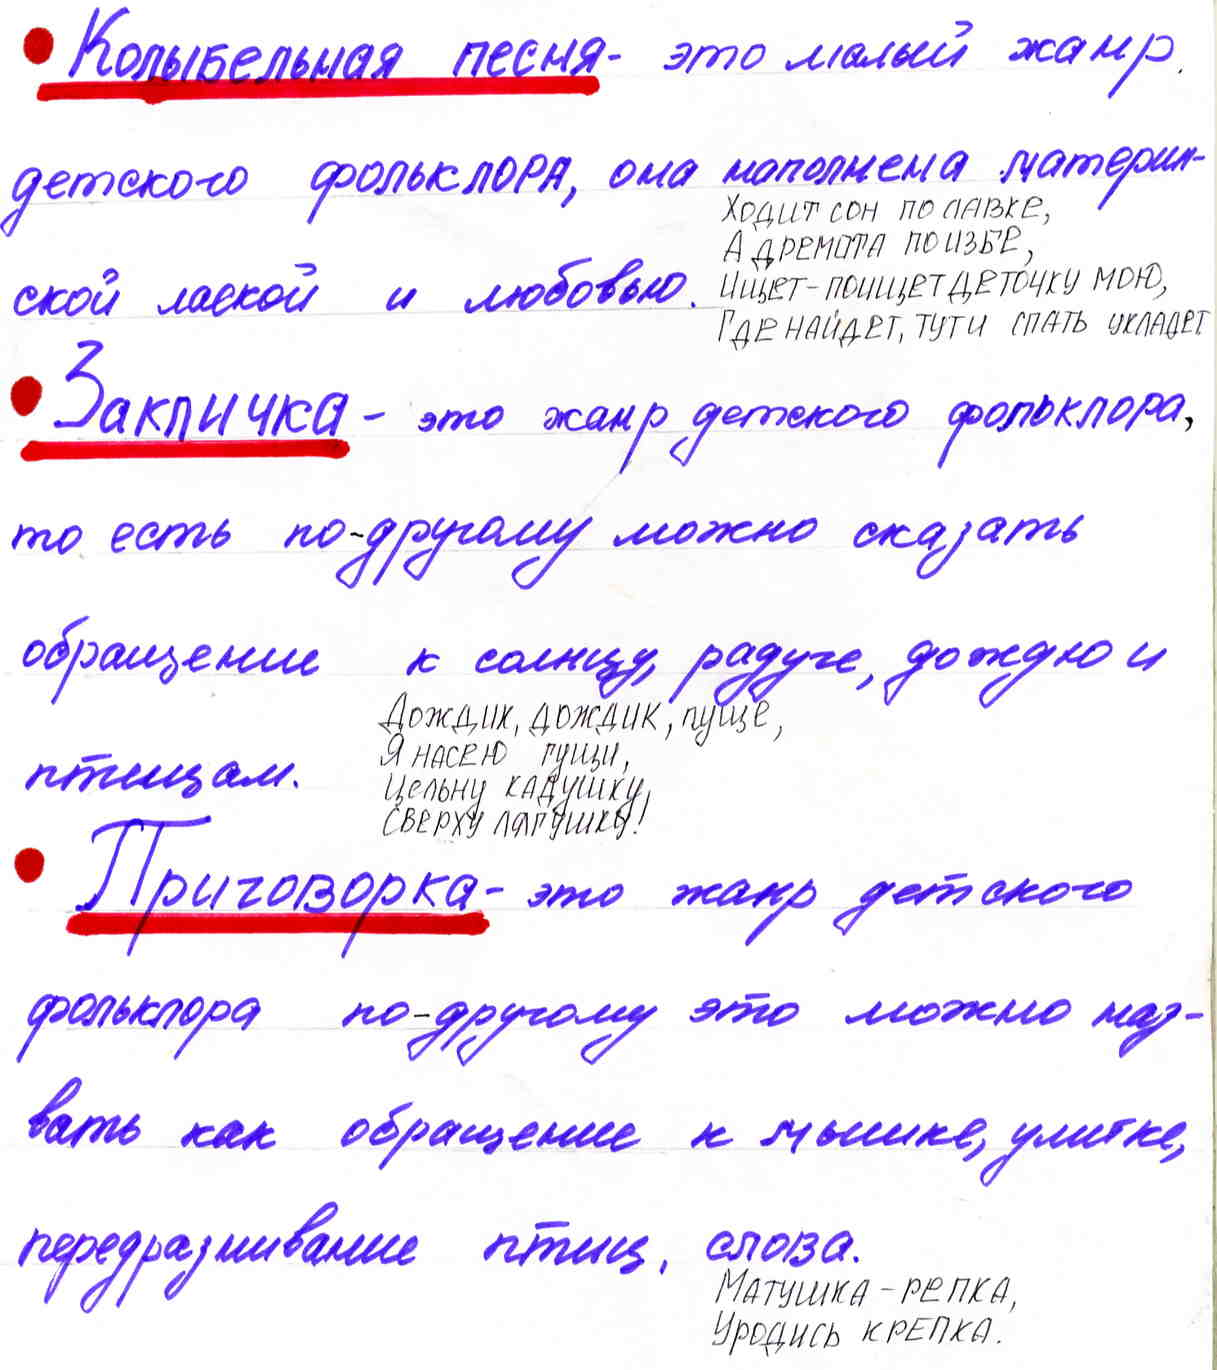 Колыбельная песня- это малый жанр
детского фольклора, она наполнена материн-
Ходит сон по лавке,
А дремота по избе,
ской лаской и любовью.
Ищет-поищет деточку мою,
Где найдет, тут и спать укладет
Закличка - это жанр детского фольклора,
то есть по-другому можно сказать
обращение к солнцу, радуге, дождю и
Дождик, дождик, пуще,
Я насею гущи,
птицам.
Цельну кадушку,
Сверху лягушку!
Приговорка - это жанр детского
фольклора по-другому это можно наз-
вать как обращение к мышке, улитке,
передразнивание птиц, слова.
Матушка-репка,
Уродись крепка.